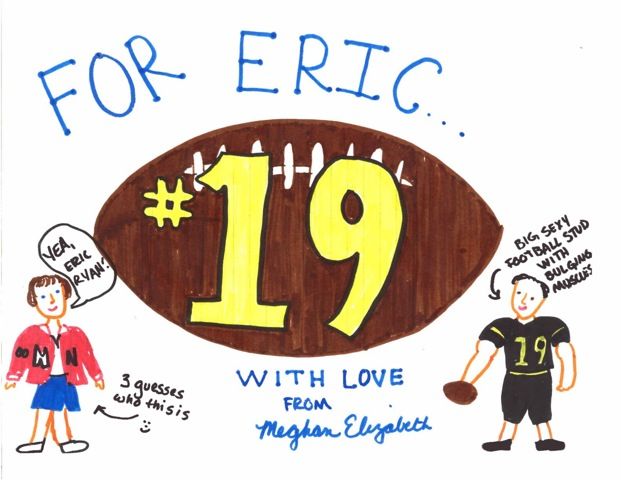 FOR ERIC...
#19
YEA,
ERIC
RYAN!
BIG SEXY
FOOTBALL STUD
WITH
BULGING
MUSCLES
M N
19
3 guesses
who this is
WITH LOVE
FROM
Meghan Elizabeth